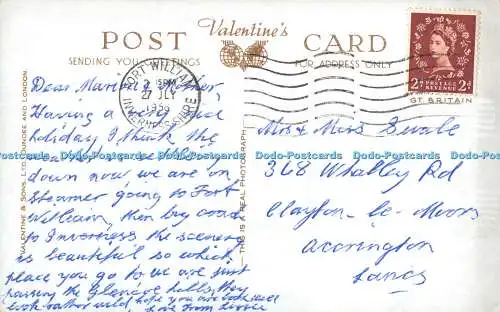 Valentine's
POST CARD
SENDING YOU GREETINGS
FOR ADDRESS ONLY
FORT WILLIAM
2 15PM
27 JLY
1956
INVERNESS-SHIRE
2D POSTAGE REVENUE 2D
GT. BRITAIN
VALENTINE & SONS, LTD., DUNDEE AND LONDON.
THIS IS A REAL PHOTOGRAPH
Dear Marion & Mother,
Having a very
holiday I think the
down now we are on
steamer going to Fort
William, then by road
to Inverness the scenery
is beautiful so which
place you go to we are just
passing the Glencoe hills, they
look rather wild, hope you are both well
Love from
Mrs & Miss Swale
368 Whalley Rd
Clayton-le-Moors
Accrington
Lancs
Dodo-Postcards Dodo-Postcards Dodo-Postcards Dodo-Postcards